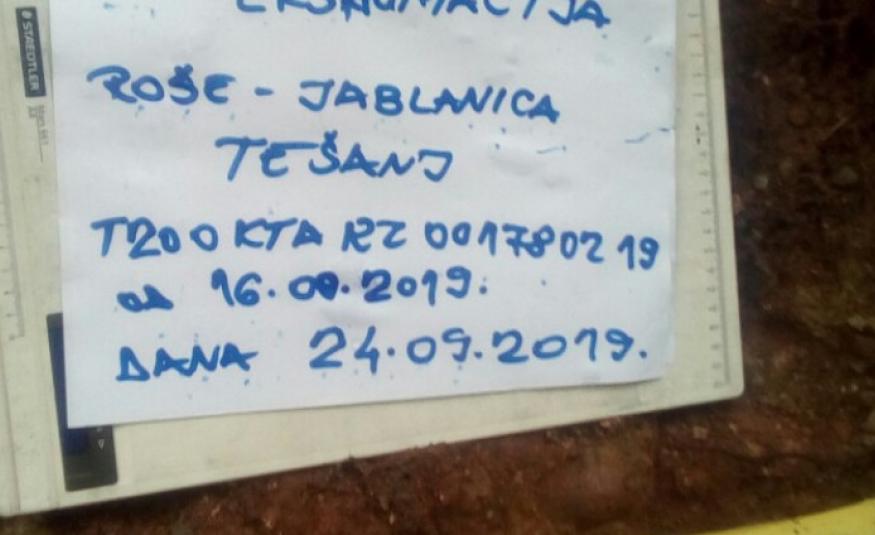 EKSHUMACIJA
ROŠE - JABLANICA
TEŠANJ
T20 0 KTA RZ 0017802 19
od 16.09.2019.
DANA 24.09.2019.
STAEDTLER